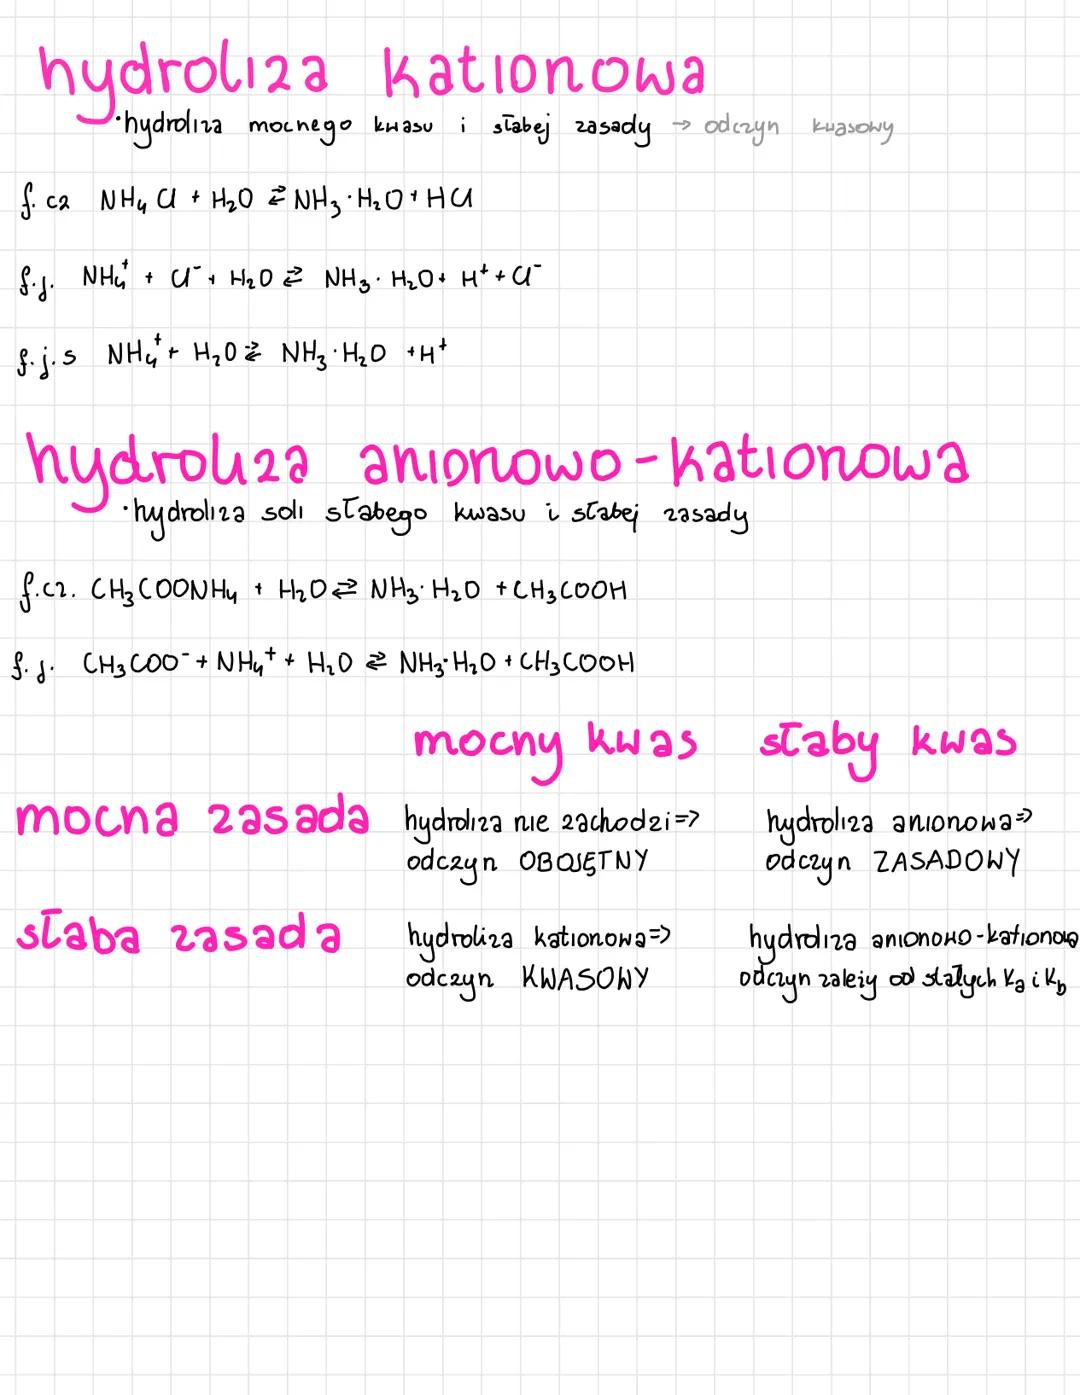 hydroliza kationowa
•hydroliza mocnego kwasu i słabej zasady → odczyn kwasowy
f. cz NH₄Cl + H₂O ⇄ NH₃·H₂O + HCl
f.j. NH₄⁺ + Cl⁻ + H₂O ⇄ NH₃·H₂O + H⁺ + Cl⁻
f.j.s NH₄⁺ + H₂O ⇄ NH₃·H₂O + H⁺
hydroliza anionowo-kationowa
•hydroliza soli słabego kwasu i słabej zasady
f.cz. CH₃COONH₄ + H₂O ⇄ NH₃·H₂O + CH₃COOH
f.j. CH₃COO⁻ + NH₄⁺ + H₂O ⇄ NH₃·H₂O + CH₃COOH
mocny kwas słaby kwas
mocna zasada hydroliza nie zachodzi => hydroliza anionowa =>
odczyn OBOJĘTNY odczyn ZASADOWY
słaba zasada hydroliza kationowa => hydroliza anionowo-kationowa
odczyn KWASOWY odczyn zależy od stałych Ka i Kb